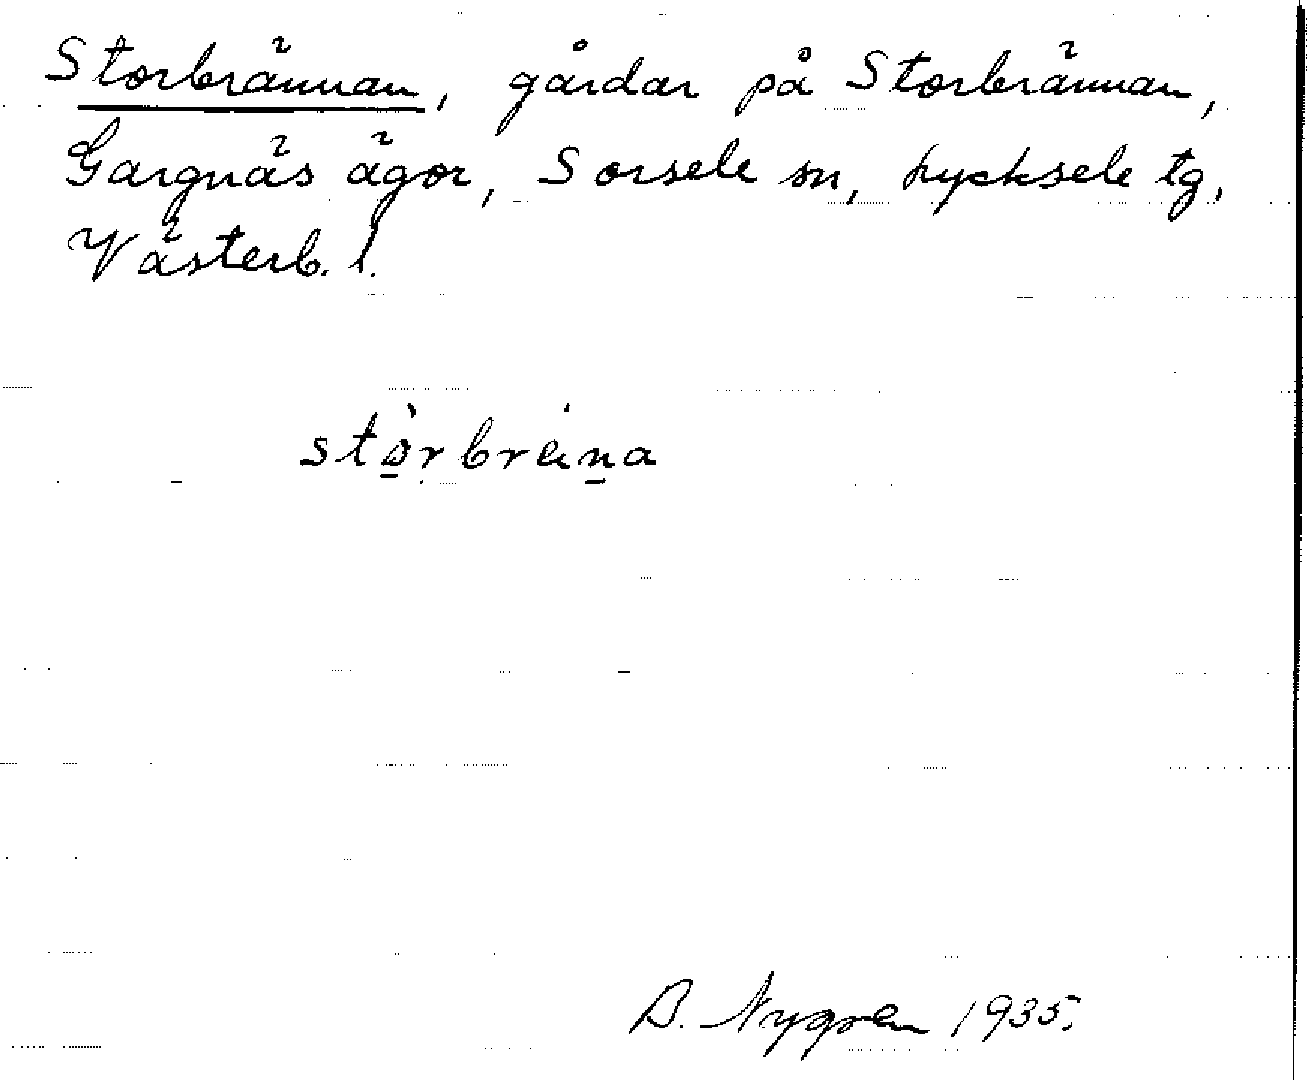 Storbrännan, gårdar på Storbrännan,
Gargnäs ägor, Sorsele sn, Lycksele tg,
Västerb. l.
Nygren 1935.